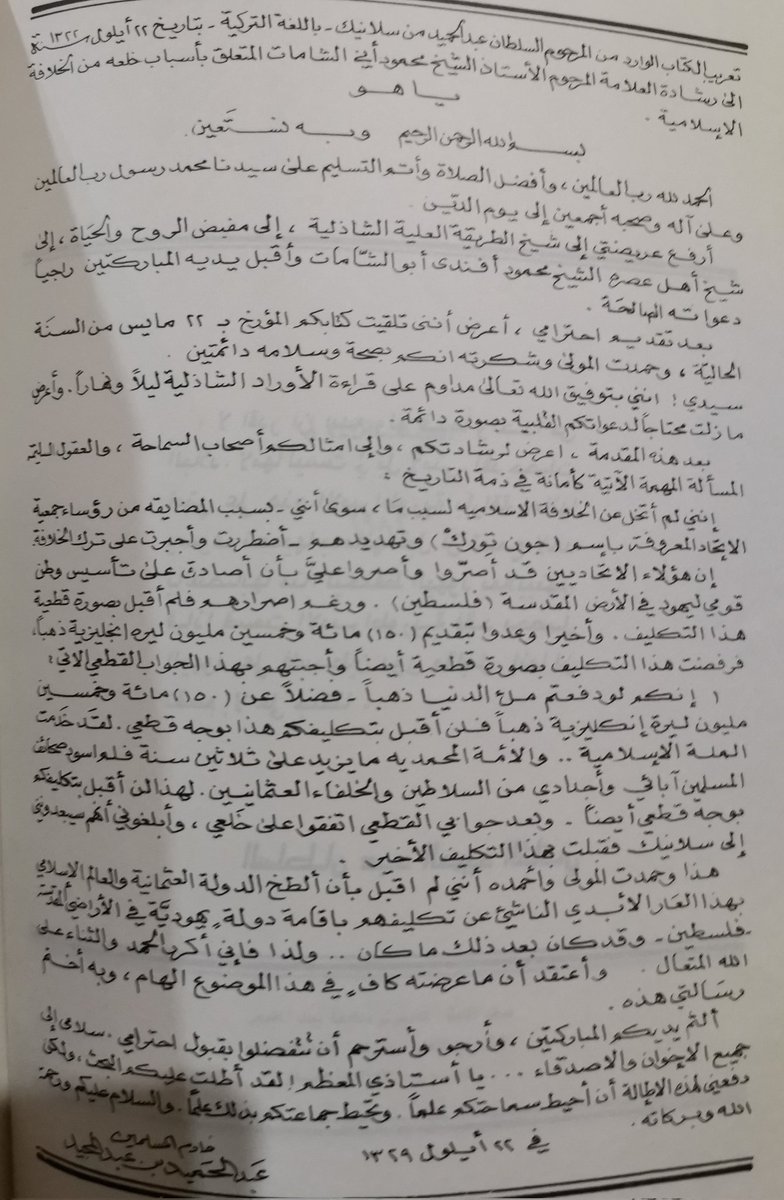 تعريب الكتاب الوارد من المرحوم السلطان عبدالحميد من سلانيك - باللغة التركية - بتاريخ ٢٢ أيلول سنة ١٣٢٢
الى رشادة العلامة المرحوم الأستاذ الشيخ محمود أبي الشامات المتعلق بأسباب خلعه من الخلافة
الإسلامية .
يا هو
بسم الله الرحمن الرحيم وبه نستعين .
الحمد لله رب العالمين ، وأفضل الصلاة وأتم التسليم على سيدنا محمد رسول رب العالمين
وعلى آله وصحبه أجمعين إلى يوم الدين .
أرفع عريضتي إلى شيخ الطريقة العلية الشاذلية ، إلى مفيض الروح والحياة ، إلى
شيخ أهل عصره الشيخ محمود أفندى أبو الشامات وأقبل يديه المباركتين راجياً
دعواته الصالحة .
بعد تقديم احترامي ، أعرض أننى تلقيت كتابكم المؤرخ بـ ٢٢ مايس من السنة
الحالية ، وحمدت المولى وشكرته انكم بصحة وسلامه دائمتين .
سيدي ! إنني بتوفيق الله تعالى مداوم على قراءة الأوراد الشاذلية ليلاً ونهاراً . وأعرض
ما زلت محتاجاً لدعواتكم القلبية بصورة دائمة .
بعد هذه المقدمة ، اعرض لرشادتكم ، والى امثالكم أصحاب السماحة ، والعقول السليمة
المسألة المهمة الآتية كأمانة في ذمة التاريخ :
إنني لم أتخل عن الخلافة الاسلاميه لسبب ما ، سوى أنني - بسبب المضايقه من رؤساء جمعية
الإتحاد المعروفة بإسم (جون تورك) وتهديدهم - أضطررت وأجبرت على ترك الخلافة
إن هؤلاء الاتحاديين قد أصرّوا وأصروا عليّ بأن أصادق على تأسيس وطن
قومي ليهود في الأرض المقدسة (فلسطين) . ورغم اصرارهم فلم أقبل بصورة قطعية
هذا التكليف . وأخيرا وعدوا بتقديم (١٥٠) مائة وخمسين مليون ليره إنجليزية ذهباً ،
فرفضت هذا التكليف بصورة قطعية أيضاً وأجبتهم بهذا الجواب القطعي الآتي :
١ إنكم لو دفعتم ملء الدنيا ذهباً - فضلاً عن (١٥٠) مائة وخمسين
مليون ليرة إنكليزية ذهباً فلن أقبل بتكليفكم هذا بوجه قطعي . لقد خدمت
الملة الإسلامية .. والأمة المحمديه ما يزيد على ثلاثين سنة فلم اسود صحائف
المسلمين آبائي وأجدادي من السلاطين والخلفاء العثمانيين . لهذا لن أقبل بتكليفكم
بوجه قطعي أيضاً - وبعد جوابي القطعي اتفقوا على خلعي ، وأبلغوني أنهم سيبعدوني
إلى سلانيك فقبلت بهذا التكليف الأخير .
هذا وحمدت المولى وأحمده أنني لم اقبل بأن ألطخ الدولة العثمانية والعالم الإسلامي
بهذا العار الأبدي الناشئ عن تكليفهم باقامة دولة يهودية في الأراضي المقدسة
- فلسطين - وقد كان بعد ذلك ما كان .. ولذا فإني أكرر الحمد والثناء على
الله المتعال . وأعتقد أن ما عرضته كافٍ في هذا الموضوع الهام ، وبه أختم
رسالتي هذه .
ألثم يديكم المباركتين ، وأرجو وأسترحم أن تتفضلوا بقبول احترامي . سلامي إلى
جميع الإخوان والاصدقاء ... يا أستاذي المعظم ! لقد أطلت عليكم البحث ، ولكن
دفعني لهذه الإطالة أن أحيط سماحتكم علماً . وتحيط جماعتكم بذلك علماً . والسلام عليكم ورحمة
الله وبركاته .
في ٢٢ أيلول ١٣٢٩
خادم المسلمين
عبد الحميد بن عبد المجيد